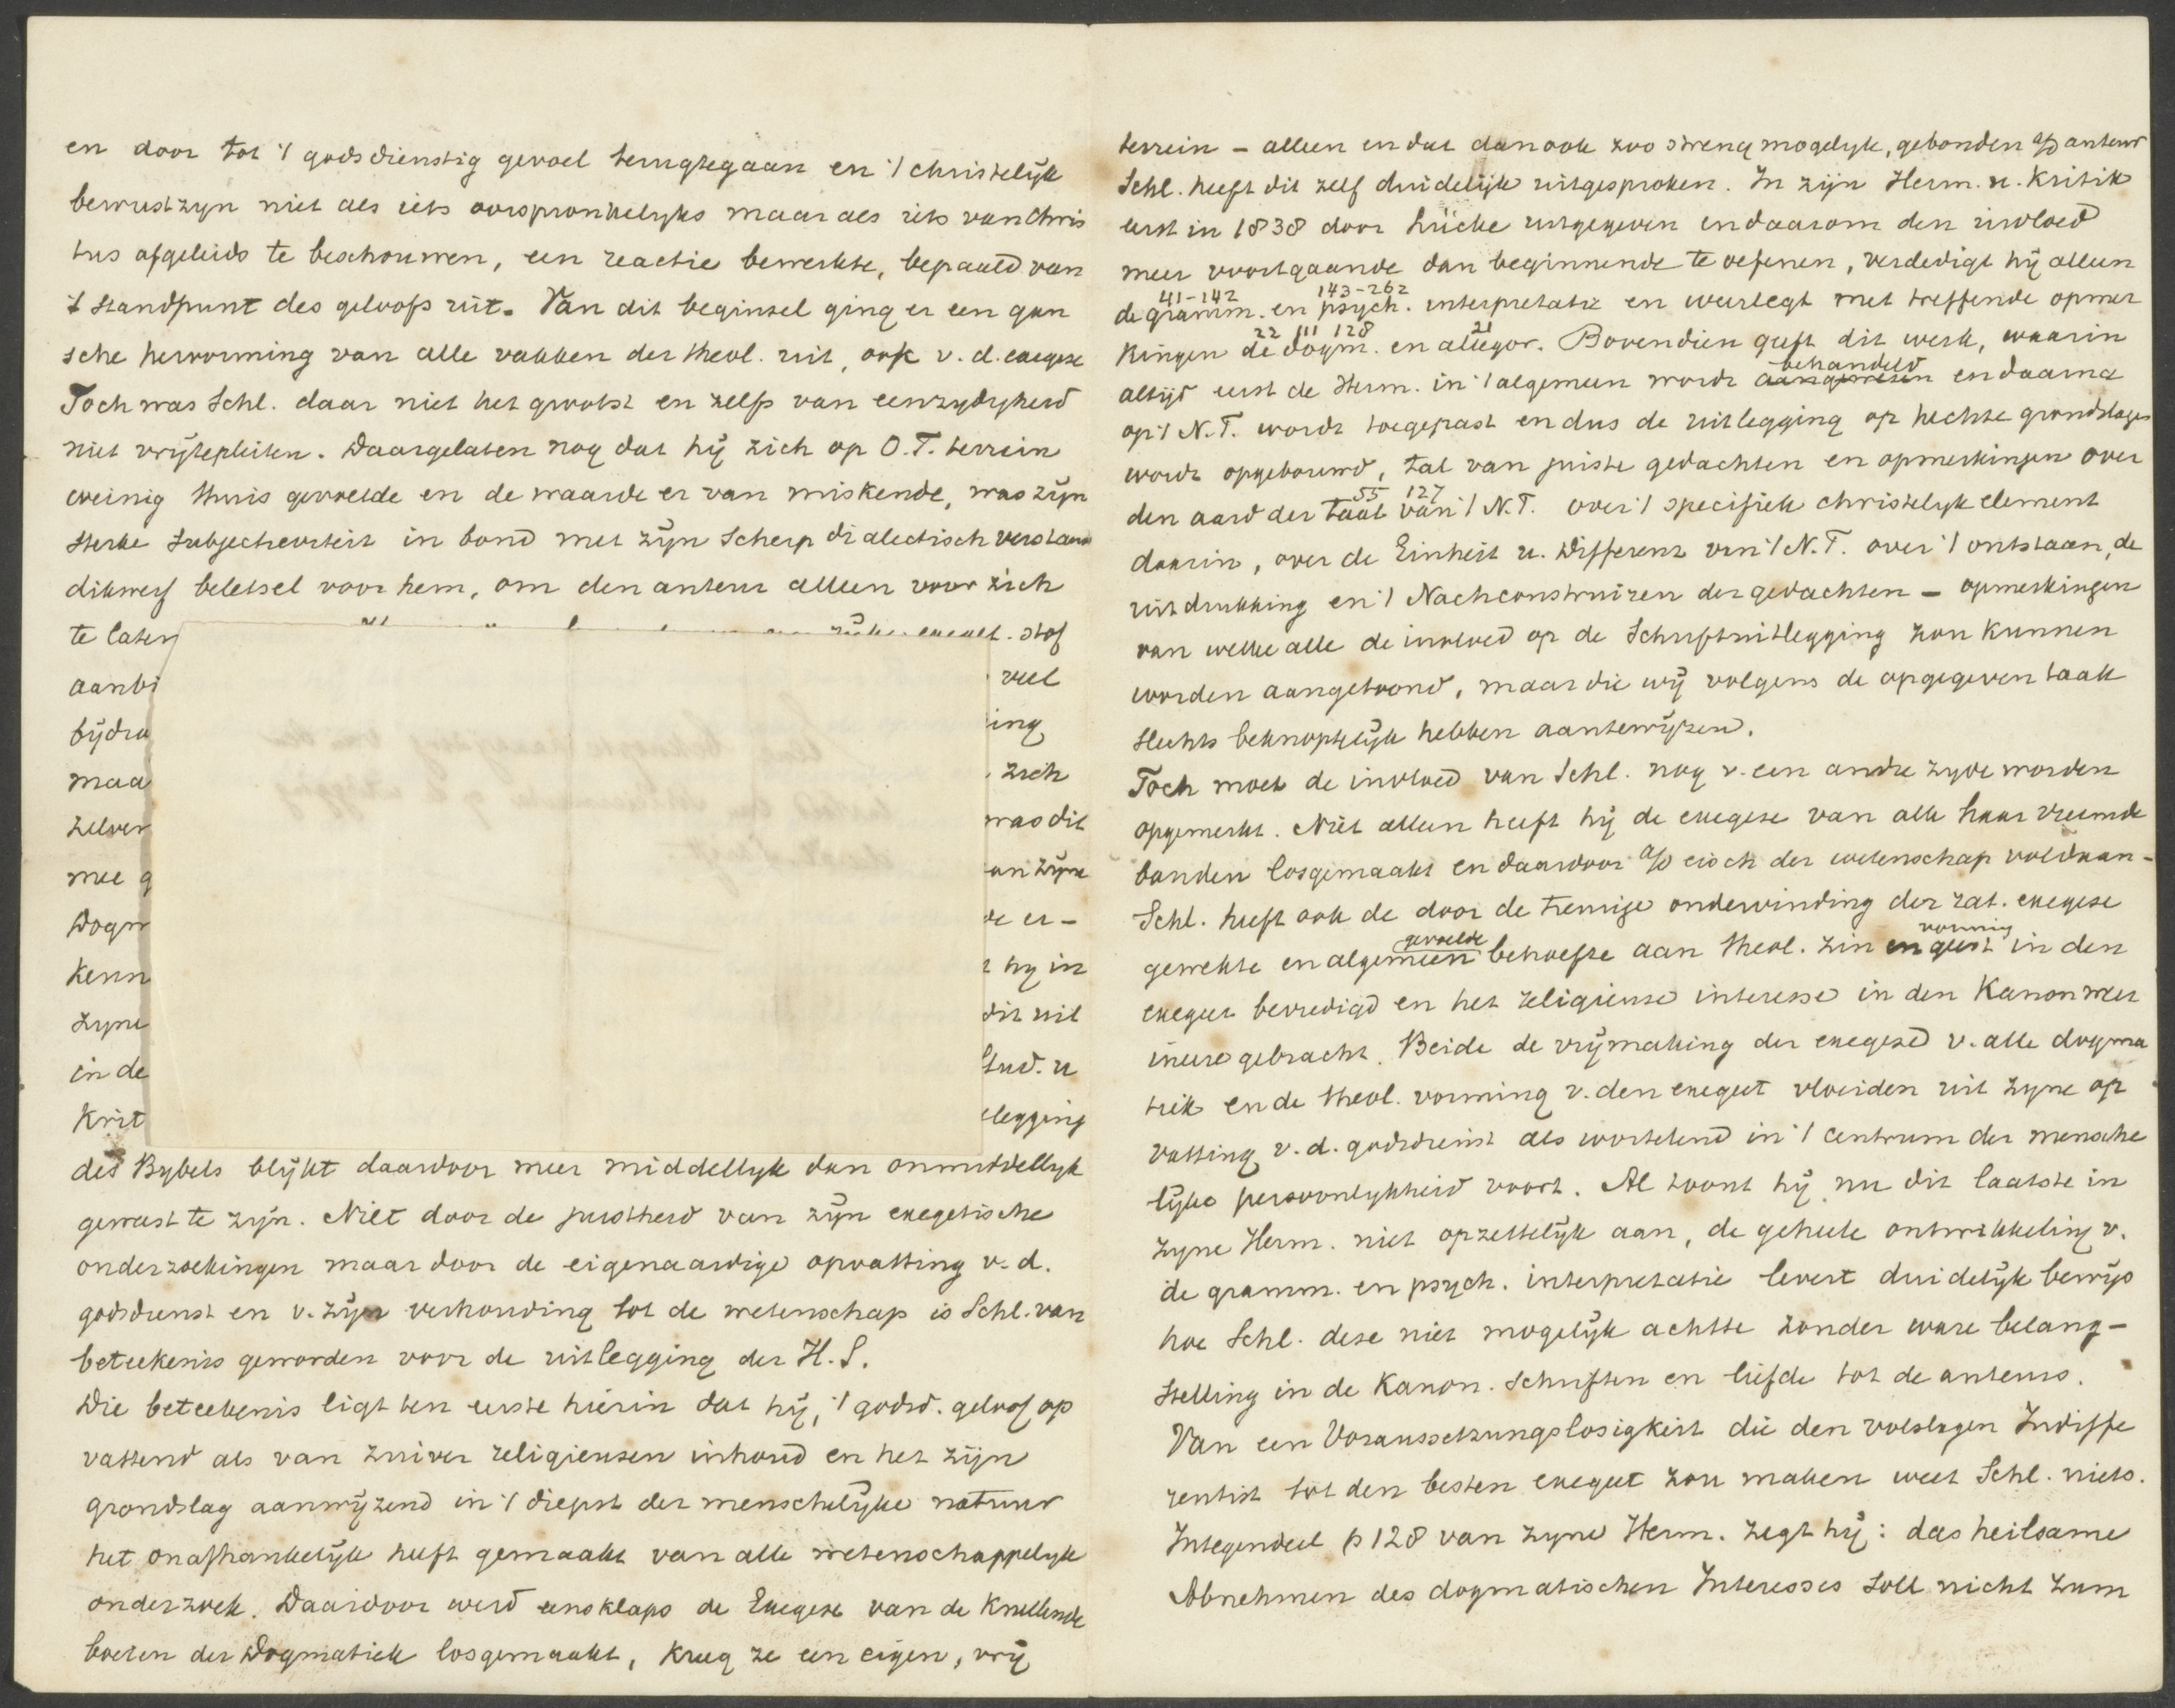 en door tot 't godsdienstig gevoel terugtegaan en 't christelijk
bewustzyn niet als iets oorspronkelyks maar als iets van Chris
tus afgeleids te beschouwen, een reactie bewerkte, bepaald van
't standpunt des geloofs uit. Van dit beginsel ging er een gan
sche hervorming van alle vakken der theol. uit, ook v. d. exegese
Toch was Schl. daar niet het grootst en zelfs van eenzydigheid
niet vrijtepleiten. Daargelaten nog dat hij zich op O.T. terrein
weinig thuis gevoelde en de waarde er van miskende, was zijn
sterke subjectiviteit in bond met zijn scherp dialectisch verstand
dikwerf beletsel voor hem, om den auteur alleen voor zich
te laten exeget. stof
aanbi veel
bijdra ing
maa zich
zelven was dit
mee g an zijne
Dogm de er-
kenn hy in
zyne dit uit
in de Stud. u
Krit legging
des Bybels blijkt daardoor meer middellyk dan onmiddellyk
geweest te zijn. Niet door de juistheid van zijn exegetische
onderzoekingen maar door de eigenaardige opvatting v. d.
godsdienst en v. zijn verhouding tot de wetenschap is Schl. van
beteekenis geworden voor de uitlegging der H.S.
Die beteekenis ligt ten eerste hierin dat hij, 't godsd. geloof op
vattend als van zuiver religieusen inhoud en het zijn
grondslag aanwijzend in 't diepst der menschelijke natuur
het onafhankelijk heeft gemaakt van alle wetenschappelyk
onderzoek. Daardoor werd eensklaps de Exegese van de knellende
boeien der Dogmatiek losgemaakt, kreeg ze een eigen, vrij
terrein - alleen en dat dan ook zoo streng mogelyk, gebonden a/d auteur
Schl. heeft dit zelf duidelijk uitgesproken. In zijn Herm. u. Kritik
eerst in 1838 door Lücke uitgegeven en daarom den invloed
meer voortgaande dan beginnende te oefenen, verdedigt hij alleen
41-142 143-262
de gramm. en psych. interpretatie en weerlegt met treffende opmer
22 111 128 21
kingen de dogm. en allegor. Bovendien geeft dit werk, waarin
behandeld
altijd eerst de Herm. in 't algemeen wordt aangewezen en daarna
op 't N.T. wordt toegepast en dus de uitlegging op hechte grondslagen
wordt opgebouwd, tal van juiste gedachten en opmerkingen over
55 127
den aard der taal van 't N.T. over 't specifiek christelyk element
daarin, over de Einheit u. Differenz van 't N.T. over 't ontstaan, de
uitdrukking en 't Nachconstruiren der gedachten - opmerkingen
van welke alle de invloed op de Schriftuitlegging zou kunnen
worden aangetoond, maar die wij volgens de opgegeven taak
slechts beknoptelijk hebben aantewijzen.
Toch moet de invloed van Schl. nog v. een andre zyde worden
opgemerkt. Niet alleen heeft hij de exegese van alle haar vreemde
banden losgemaakt en daardoor a/d eisch der wetenschap voldaan -
Schl. heeft ook de door de treurige ondervinding der rat. exegese
gevoelde vorming
gewekte en algemeen behoefte aan theol. zin en geest in den
exegeet bevredigd en het religieuse interesse in den Kanon weer
in eere gebracht. Beide de vrijmaking der exegese v. alle dogma
tiek en de theol. vorming v. den exegeet vloeiden uit zyne op
vatting v. d. godsdienst als wortelend in 't centrum der mensche
lijke persoonlykheid voort. Al toont hij nu dit laatste in
zyne Herm. niet opzettelijk aan, de geheele ontwikkeling v.
de gramm. en psych. interpretatie levert duidelijk bewijs
hoe Schl. deze niet mogelijk achtte zonder ware belang-
stelling in de Kanon. schriften en liefde tot de auteurs.
Van een Voraussetzungslosigkeit die den volslagen Indiffe
rentist tot den besten exegeet zou maken weet Schl. niets.
Integendeel p 128 van zyne Herm. zegt hij: das heilsame
Abnehmen des dogmatischen Interesses soll nicht zum